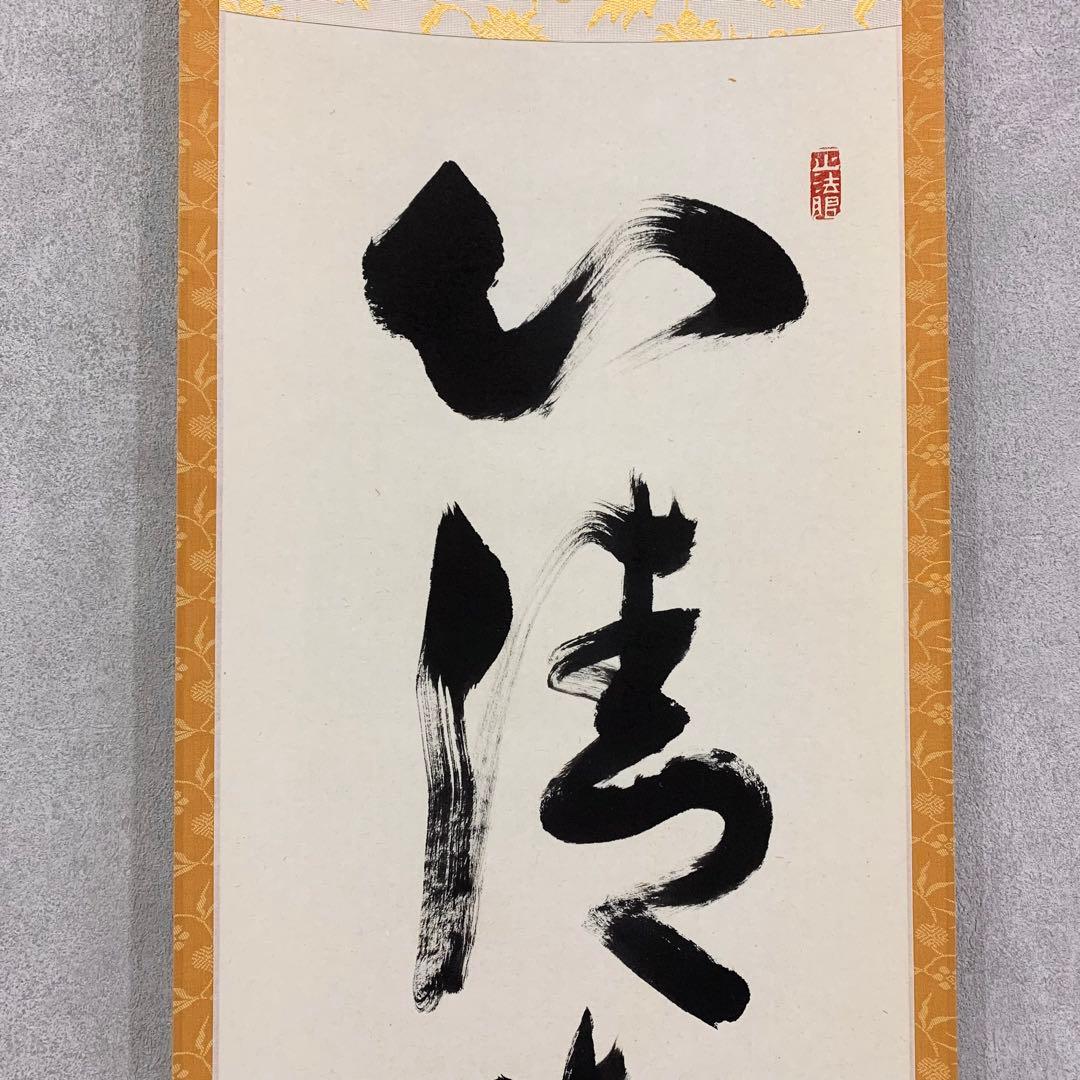 正法眼
心清